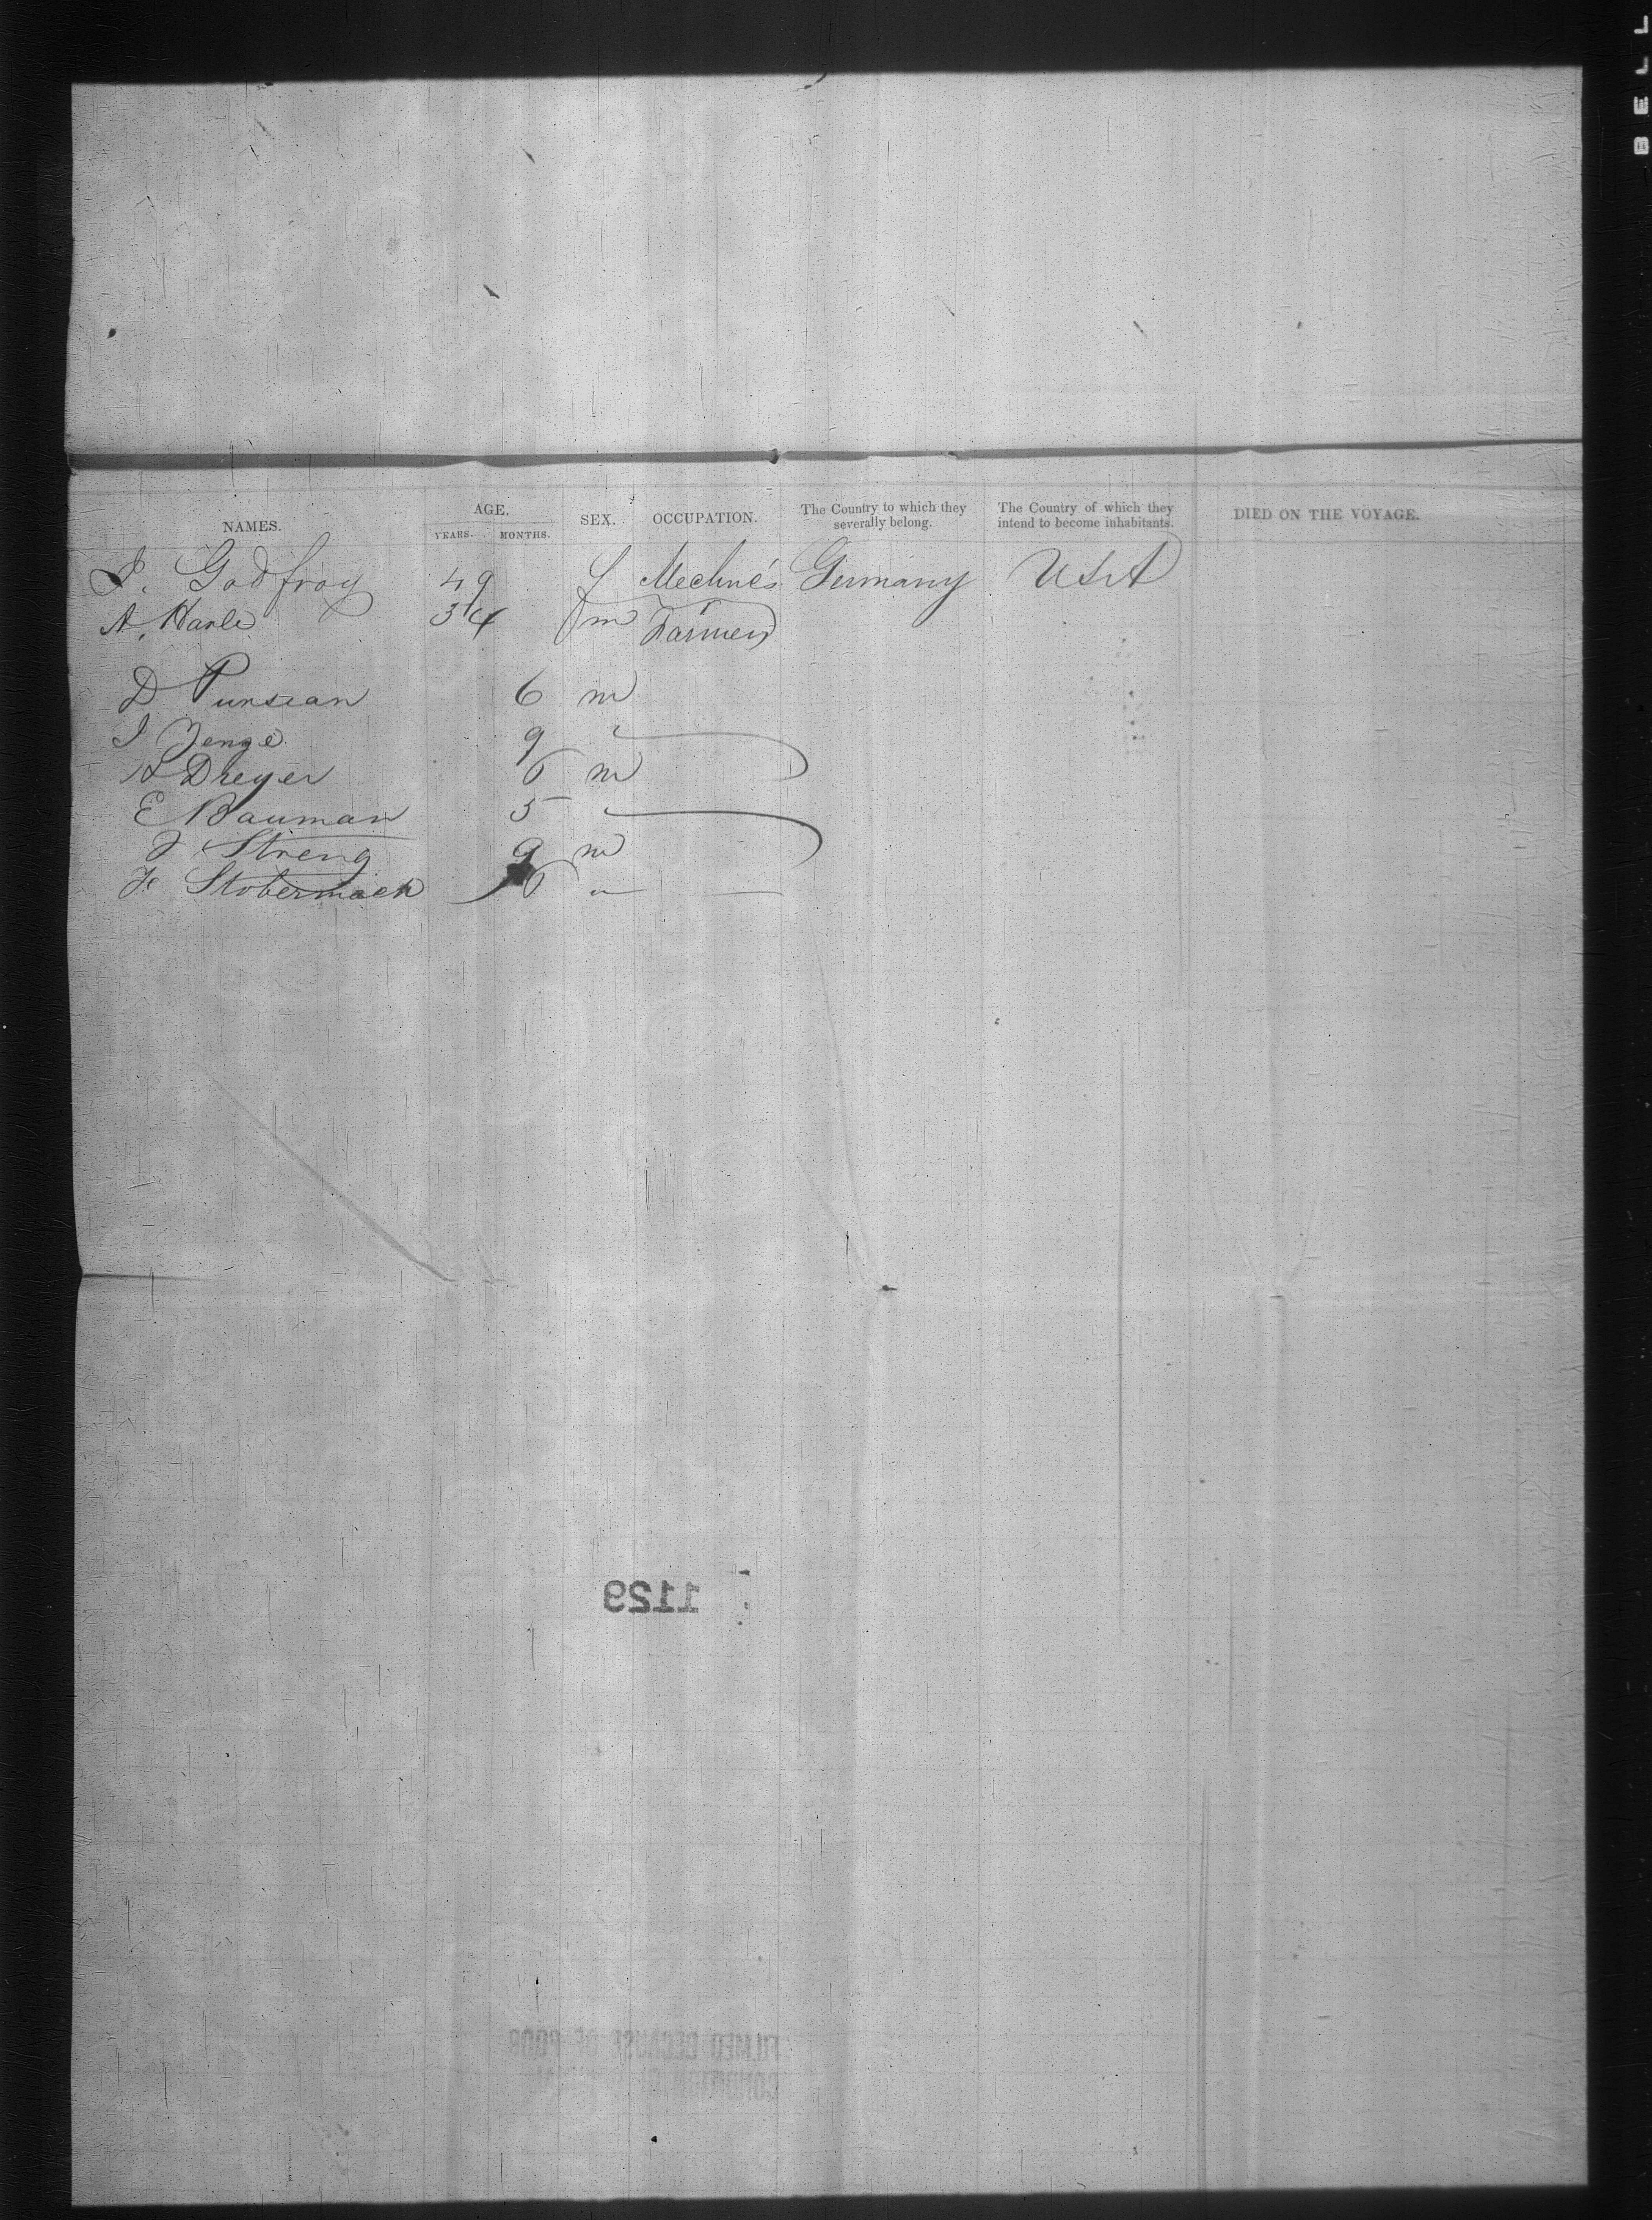 BELL
NAMES. AGE. YEARS. MONTHS. SEX. OCCUPATION. The Country to which they severally belong. The Country of which they intend to become inhabitants. DIED ON THE VOYAGE.
J. Godfroy 49 f Mechnc's Germany USA
A. Karle 34 m Farmer
D Punsean 6 m
J Zenge 9 "
A Dreyer 6 m
E Bauman 5 "
J Streng 9 m
Fr Stobermack 6 "
1129
FILMED BECAUSE OF POOR
CONDITION OF ORIGINAL